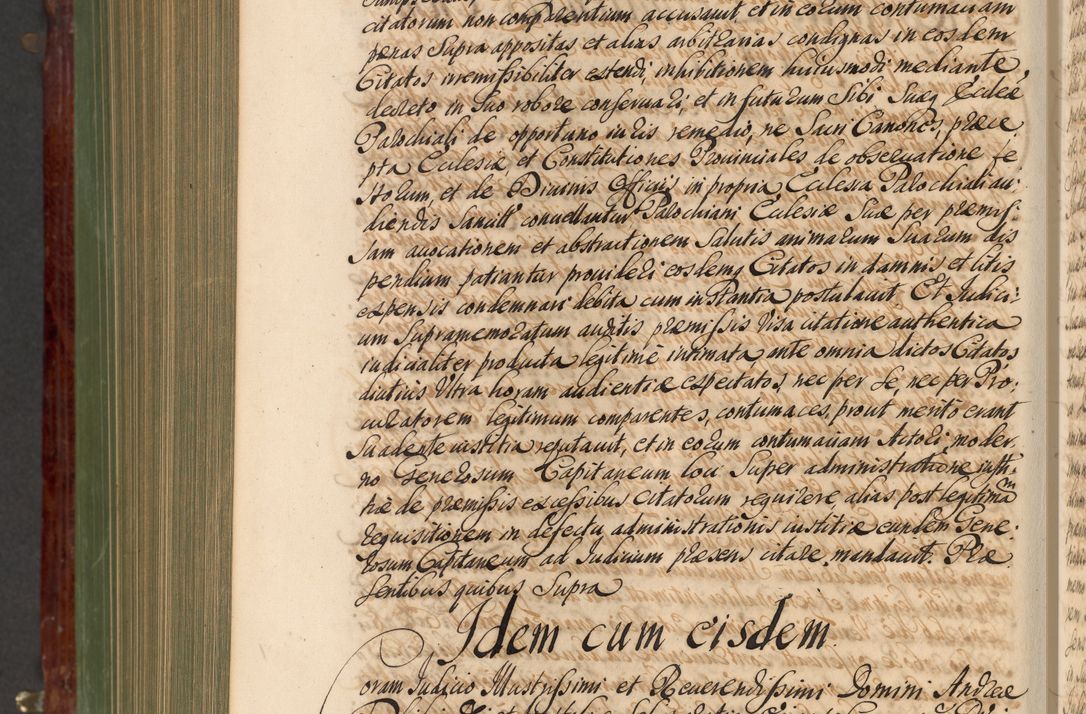 citatorum non comparentium accusavit, et in eorum contumaciam
pænas supra appositas et alias arbitrarias condignas in eosdem
Citatos irremissibiliter extendi inhibitionem huiusmodi mediante
decreto in suo robore conservari, et in futurum sibi suæq Ecclæ
Parochiali de opportuno iuris remedio, ne Sacri Canones, præce
pta Ecclesiæ, et Constitutiones Provinciales de observatione fe
storum, et de Divinis Officijs in propria Ecclesia Parochiali au:
diendis Sancitæ convellantur Parochiani Ecclesiæ Suæ per præmis:
sam avocationem et abstractionem Salutis animarum Suarum dis
pendium patiantur provideri eosdemq Citatos in damnis et litis
expensis condemnari debita cum instantia postulavit Et Judici:
um Supramemoratum auditis præmissis Visa citatione authentica
iudicialiter producta legitimè intimata ante omnia dictos Citatos
diutius Ultra horam audientiæ expectatos, nec per se, nec per Pro:
curatorem legitimum comparentes, contumaces, prout merito erant
suadente iustitia reputavit, et in eorum contumaciam Actori moder
no Generosum Capitaneum loci Super administratione justi:
tiæ de præmissis excessibus citatorum requirere, alias post legitimam
requisitionem in defectu administrationis iustitiæ eundem Gene:
rosum Capitaneum ad Judicium præsens citare mandavit. Præ
sentibus quibus Supra
Idem cum eisdem
Coram Judicio Illustrissimi et Reverendissimi Domini Andreæ